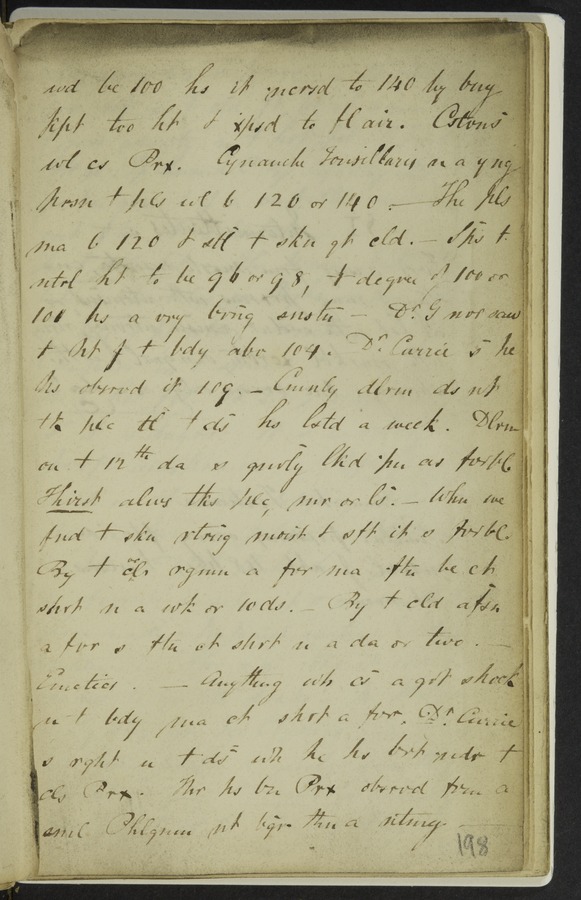 wd be 100 hs it incrsd to 140 by bng
kpt too ht & expsd to fl air. Cstons
wl cs Prx. Cynanche Tonsillaris n a yng
prsn + pls wl b 120 or 140. — The pls
ma b 120 & stl + skn qt cld. — Sps t.
ntrl ht to be 96 or 98, + degree of 100 or
101 hs a vry bring snstn — Dr. G nvr saw
+ ht f + bdy abv 104. Dr. Currie s he
hs obsrvd it 109. — Cmnly dlrm ds nt
tk plc tl + ds hs lstd a week. Dlrm
on + 12th da s gnrly lkd upn as fvrbl
Thirst alws tks plc, mr or ls. — When we
fnd + skn rtrng moist & sft it s fvrbl.
By + cls rgmn a fvr ma ftn be ct
shrt n a wk or 10 ds. — By + cld afsn
a fvr s ftn ct shrt n a da or two. —
Emetics. — Anything wh cs a grt shock
n + bdy ma ct shrt a fvr. Dr. Currie
s rght n + ds wh he hs brt undr +
cls Prx. Thr hs bn Prx obsrvd frm a
sml Phlgmn nt bgr thn a ntmg.
198